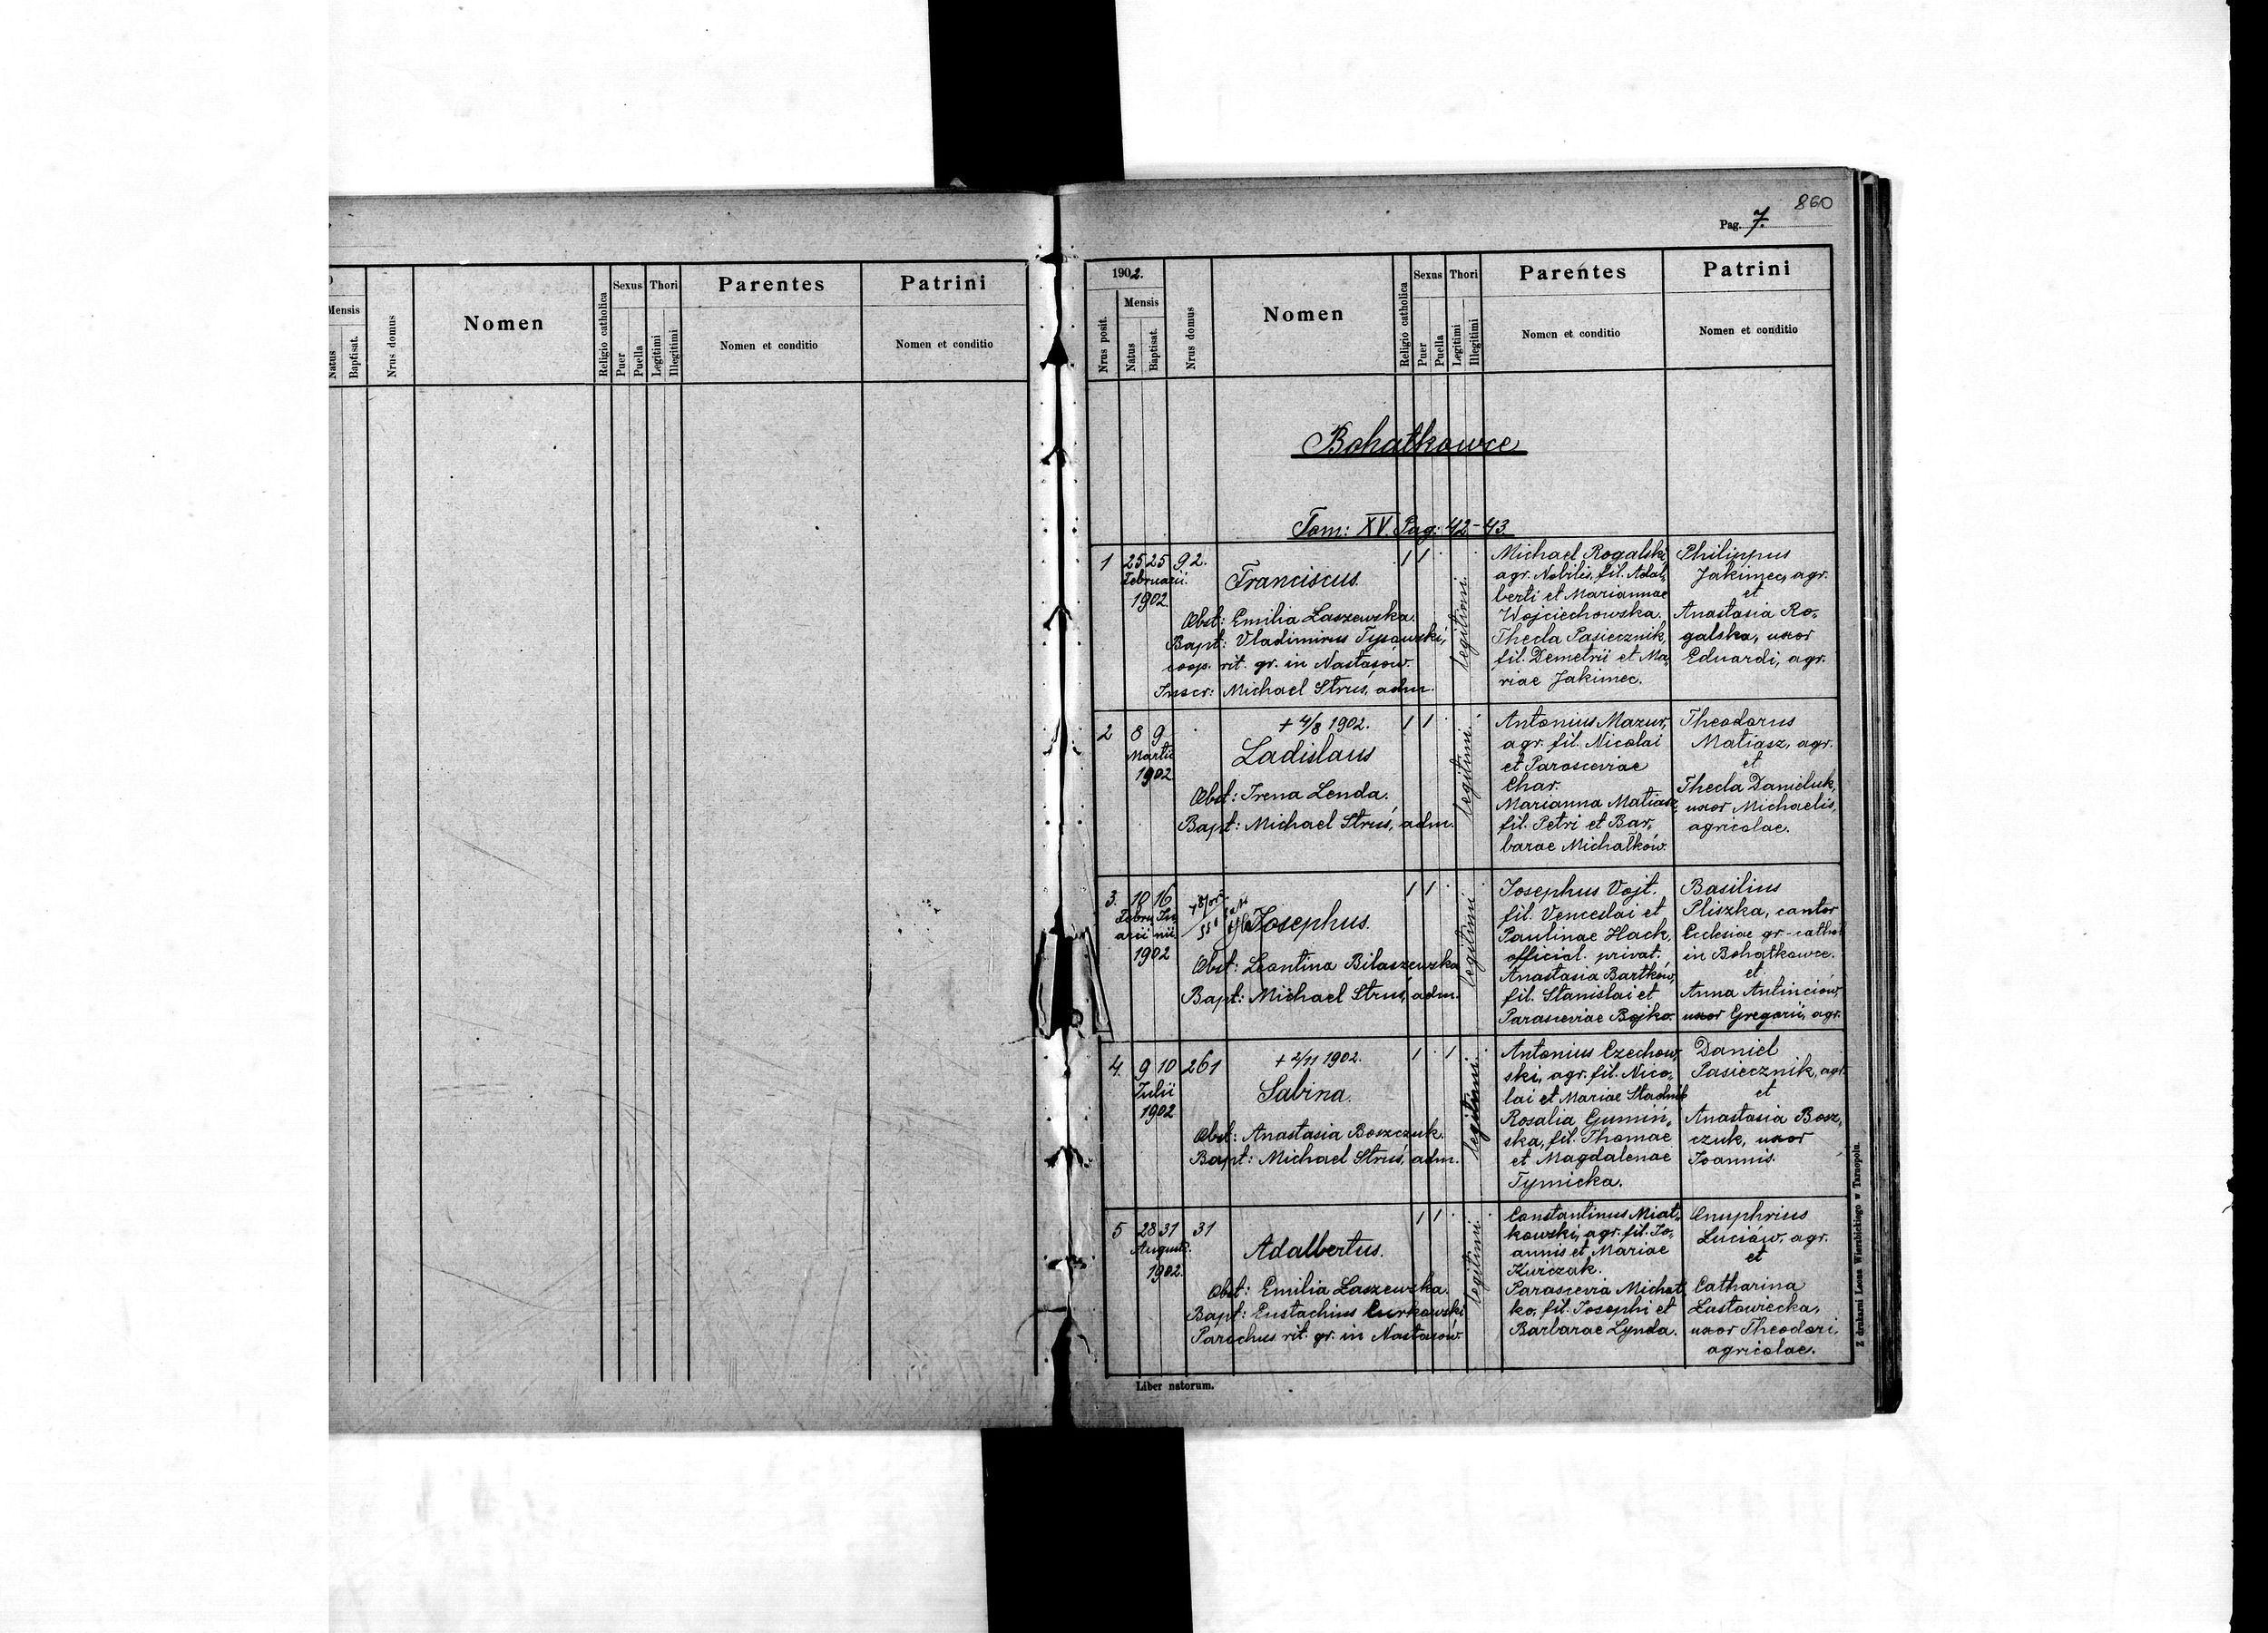 Mensis
Natus
Baptisat.
Nrus domus
Nomen
Religio catholica
Sexus
Puer
Puella
Thori
Legitimi
Illegitimi
Parentes
Nomen et conditio
Patrini
Nomen et conditio
860
Pag. 7.
1902.
Nrus posit.
Mensis
Natus
Baptisat.
Nrus domus
Nomen
Religio catholica
Sexus
Puer
Puella
Thori
Legitimi
Illegitimi
Parentes
Nomen et conditio
Patrini
Nomen et conditio
Bohatkowce
Tom: XV. Pag: 42-43.
1 25 25 92.
Februarii.
1902.
Franciscus.
Obst: Emilia Laszewska.
Bapt: Vladimirus Tysowski,
coop. rit. gr. in Nastasów.
Inscr: Michael Struś, adm.
1 1
legitimi.
Michael Rogalski,
agr. Nobilis, fil. Adal,
berti et Mariannae
Wojciechowska.
Thecla Pasiecznik,
fil. Demetrii et Ma,
riae Jakimec.
Philippus
Jakimec, agr.
et
Anastasia Ro,
galska, uxor
Eduardi, agr.
2 8 9
Martii
1902
+ 4/8 1902.
Ladislaus
Obst: Irena Lenda.
Bapt: Michael Struś, adm.
1 1
legitimi.
Antonius Mazur,
agr. fil. Nicolai
et Parasceviae
Char.
Marianna Matiasz,
fil. Petri et Bar,
barae Michałków.
Theodorus
Matiasz, agr.
et
Thecla Danieluk,
uxor Michaelis,
agricolae.
3. 10 16
Febru Ju
arii nii
1902
Josephus.
Obst: Leontina Bilaszewska
Bapt: Michael Struś, adm.
1 1
legitimi
Josephus Vojt.
fil. Venceslai et
Paulinae Hack,
official. privat.
Anastasia Bartków,
fil. Stanislai et
Parasceviae Bojko.
Basilius
Pliszka, cantor
Ecclesiae gr.-cathol
in Bohatkowce.
et
Anna Antinciów,
uxor Gregorii, agr.
4. 9 10 261
Julii
1902
+ 2/11 1902.
Sabina.
Obst: Anastasia Boszczuk.
Bapt: Michael Struś, adm.
1 1
legitimi.
Antonius Czechow,
ski, agr. fil. Nico,
lai et Mariae Stadnik
Rosalia Gumiń,
ska, fil. Thomae
et Magdalenae
Tymicka.
Daniel
Pasiecznik, agr.
et
Anastasia Bosz,
czuk, uxor
Joannis.
5 28 31 31
Augusti.
1902.
Adalbertus.
Obst: Emilia Laszewska.
Bapt: Eustachius Curkowski,
Parochus rit. gr. in Nastasów.
1 1
legitimi
Constantinus Miat,
kowski, agr. fil. Jo,
annis et Mariae
Kurczak.
Parascevia Michał
ko, fil. Josephi et
Barbarae Lynda.
Onuphrius
Luciów, agr.
et
Catharina
Lastowiecka,
uxor Theodori,
agricolae.
Liber natorum.
Z drukarni Leona Wierzbickiego w Tarnopolu.